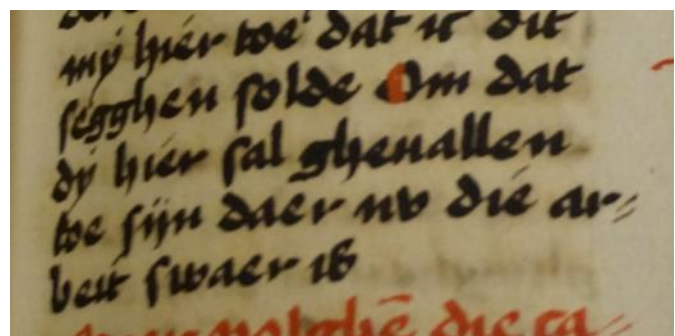 mij hier toe dat ic dit
segghen solde Om dat
dij hier sal gheuallen
toe sijn daer nv die ar⸗
beit swaer is
die ca⸗